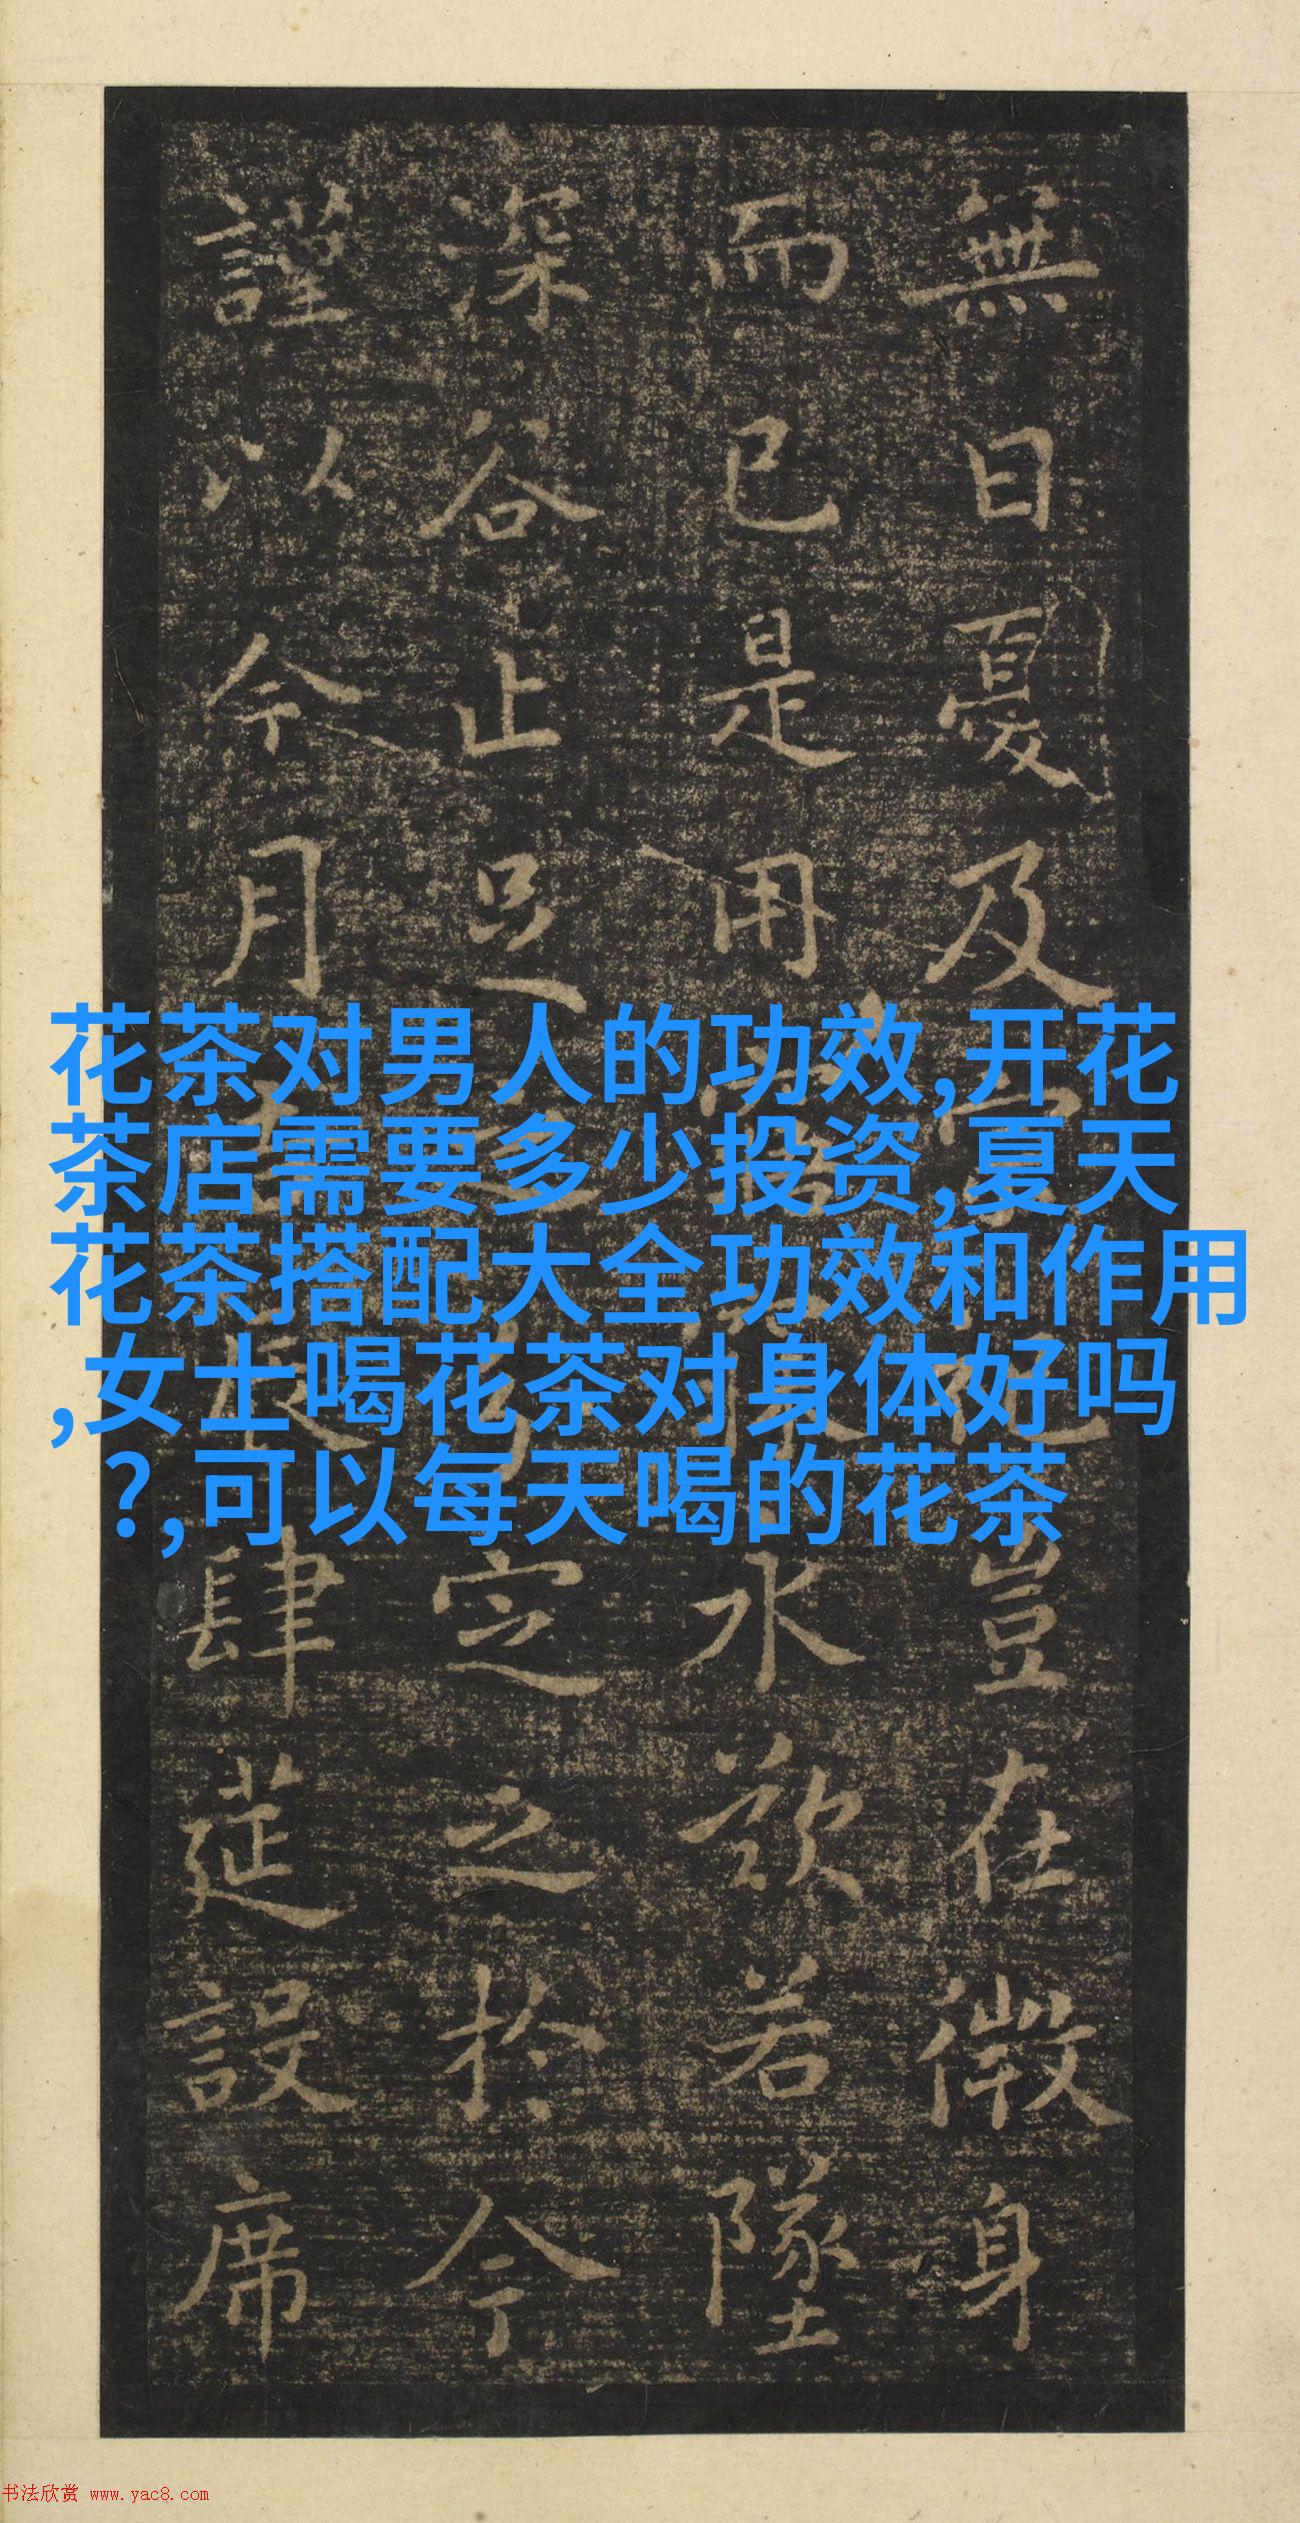 無日憂及宗祀豈在微身
而已是用寤寐永歎若墜
深谷止足之分定之於今
謹以今月吉辰肆筵設席
花茶对男人的功效,开花
茶店需要多少投资,夏天
花茶搭配大全功效和作用
,女士喝花茶对身体好吗
?,可以每天喝的花茶
书法欣赏 www.yac8.com